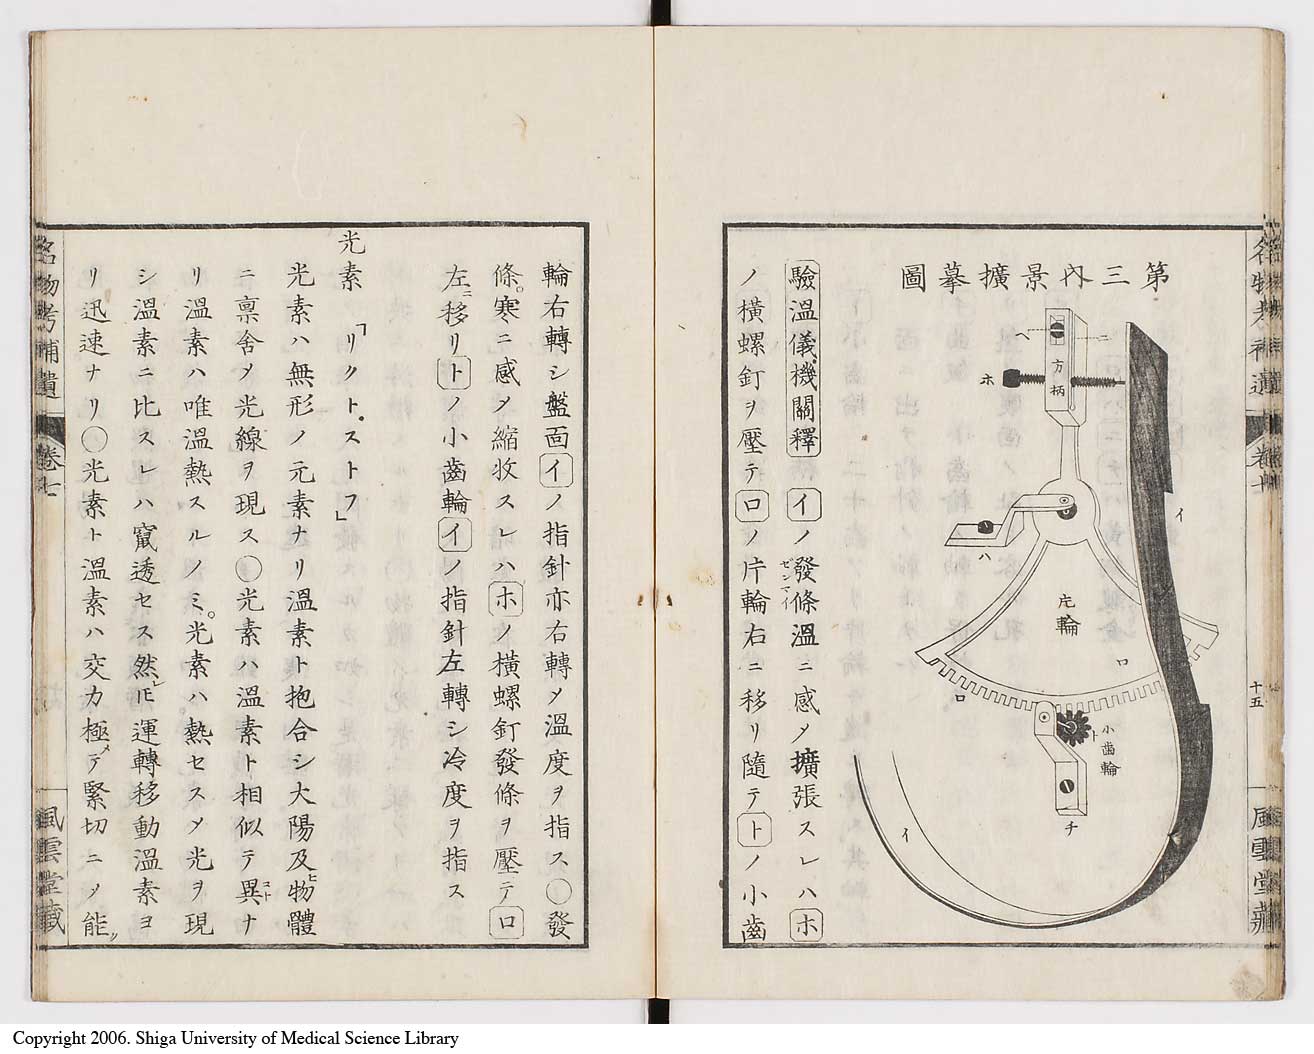 第三內景擴摹圖
ヘ
ニ
方柄
ホ
イ
ハ
左輪
ロ
ロ
ト
小齒輪
チ
イ
驗溫儀機關釋 イノ發條溫ニ感メ擴張スレハホ
ゼンマイ
ノ橫螺釘ヲ壓テロノ片輪右ニ移リ隨テトノ小齒
名物考補遺 卷七 十五 風雲堂藏
輪右轉シ盤面イノ指針亦右轉メ溫度ヲ指ス○發
條寒ニ感メ縮收スレハホノ橫螺釘發條ヲ壓テロ
左ニ移リトノ小齒輪イノ指針左轉シ冷度ヲ指ス
光素「リクト、ストフ」
光素ハ無形ノ元素ナリ溫素ト抱合シ大陽及ヒ物體
ニ稟舍メ光線ヲ現ス○光素ハ溫素ト相似テ異コトナ
リ溫素ハ唯溫熱スルノミ。光素ハ熱セスメ光ヲ現
シ溫素ニ比スレハ竄透セス然ヒ𪜈運轉移動溫素ヨ
リ迅速ナリ○光素ト溫素ハ交力極メテ緊切ニメ能ク
名物考補遺 卷七 風雲堂藏
Copyright 2006. Shiga University of Medical Science Library